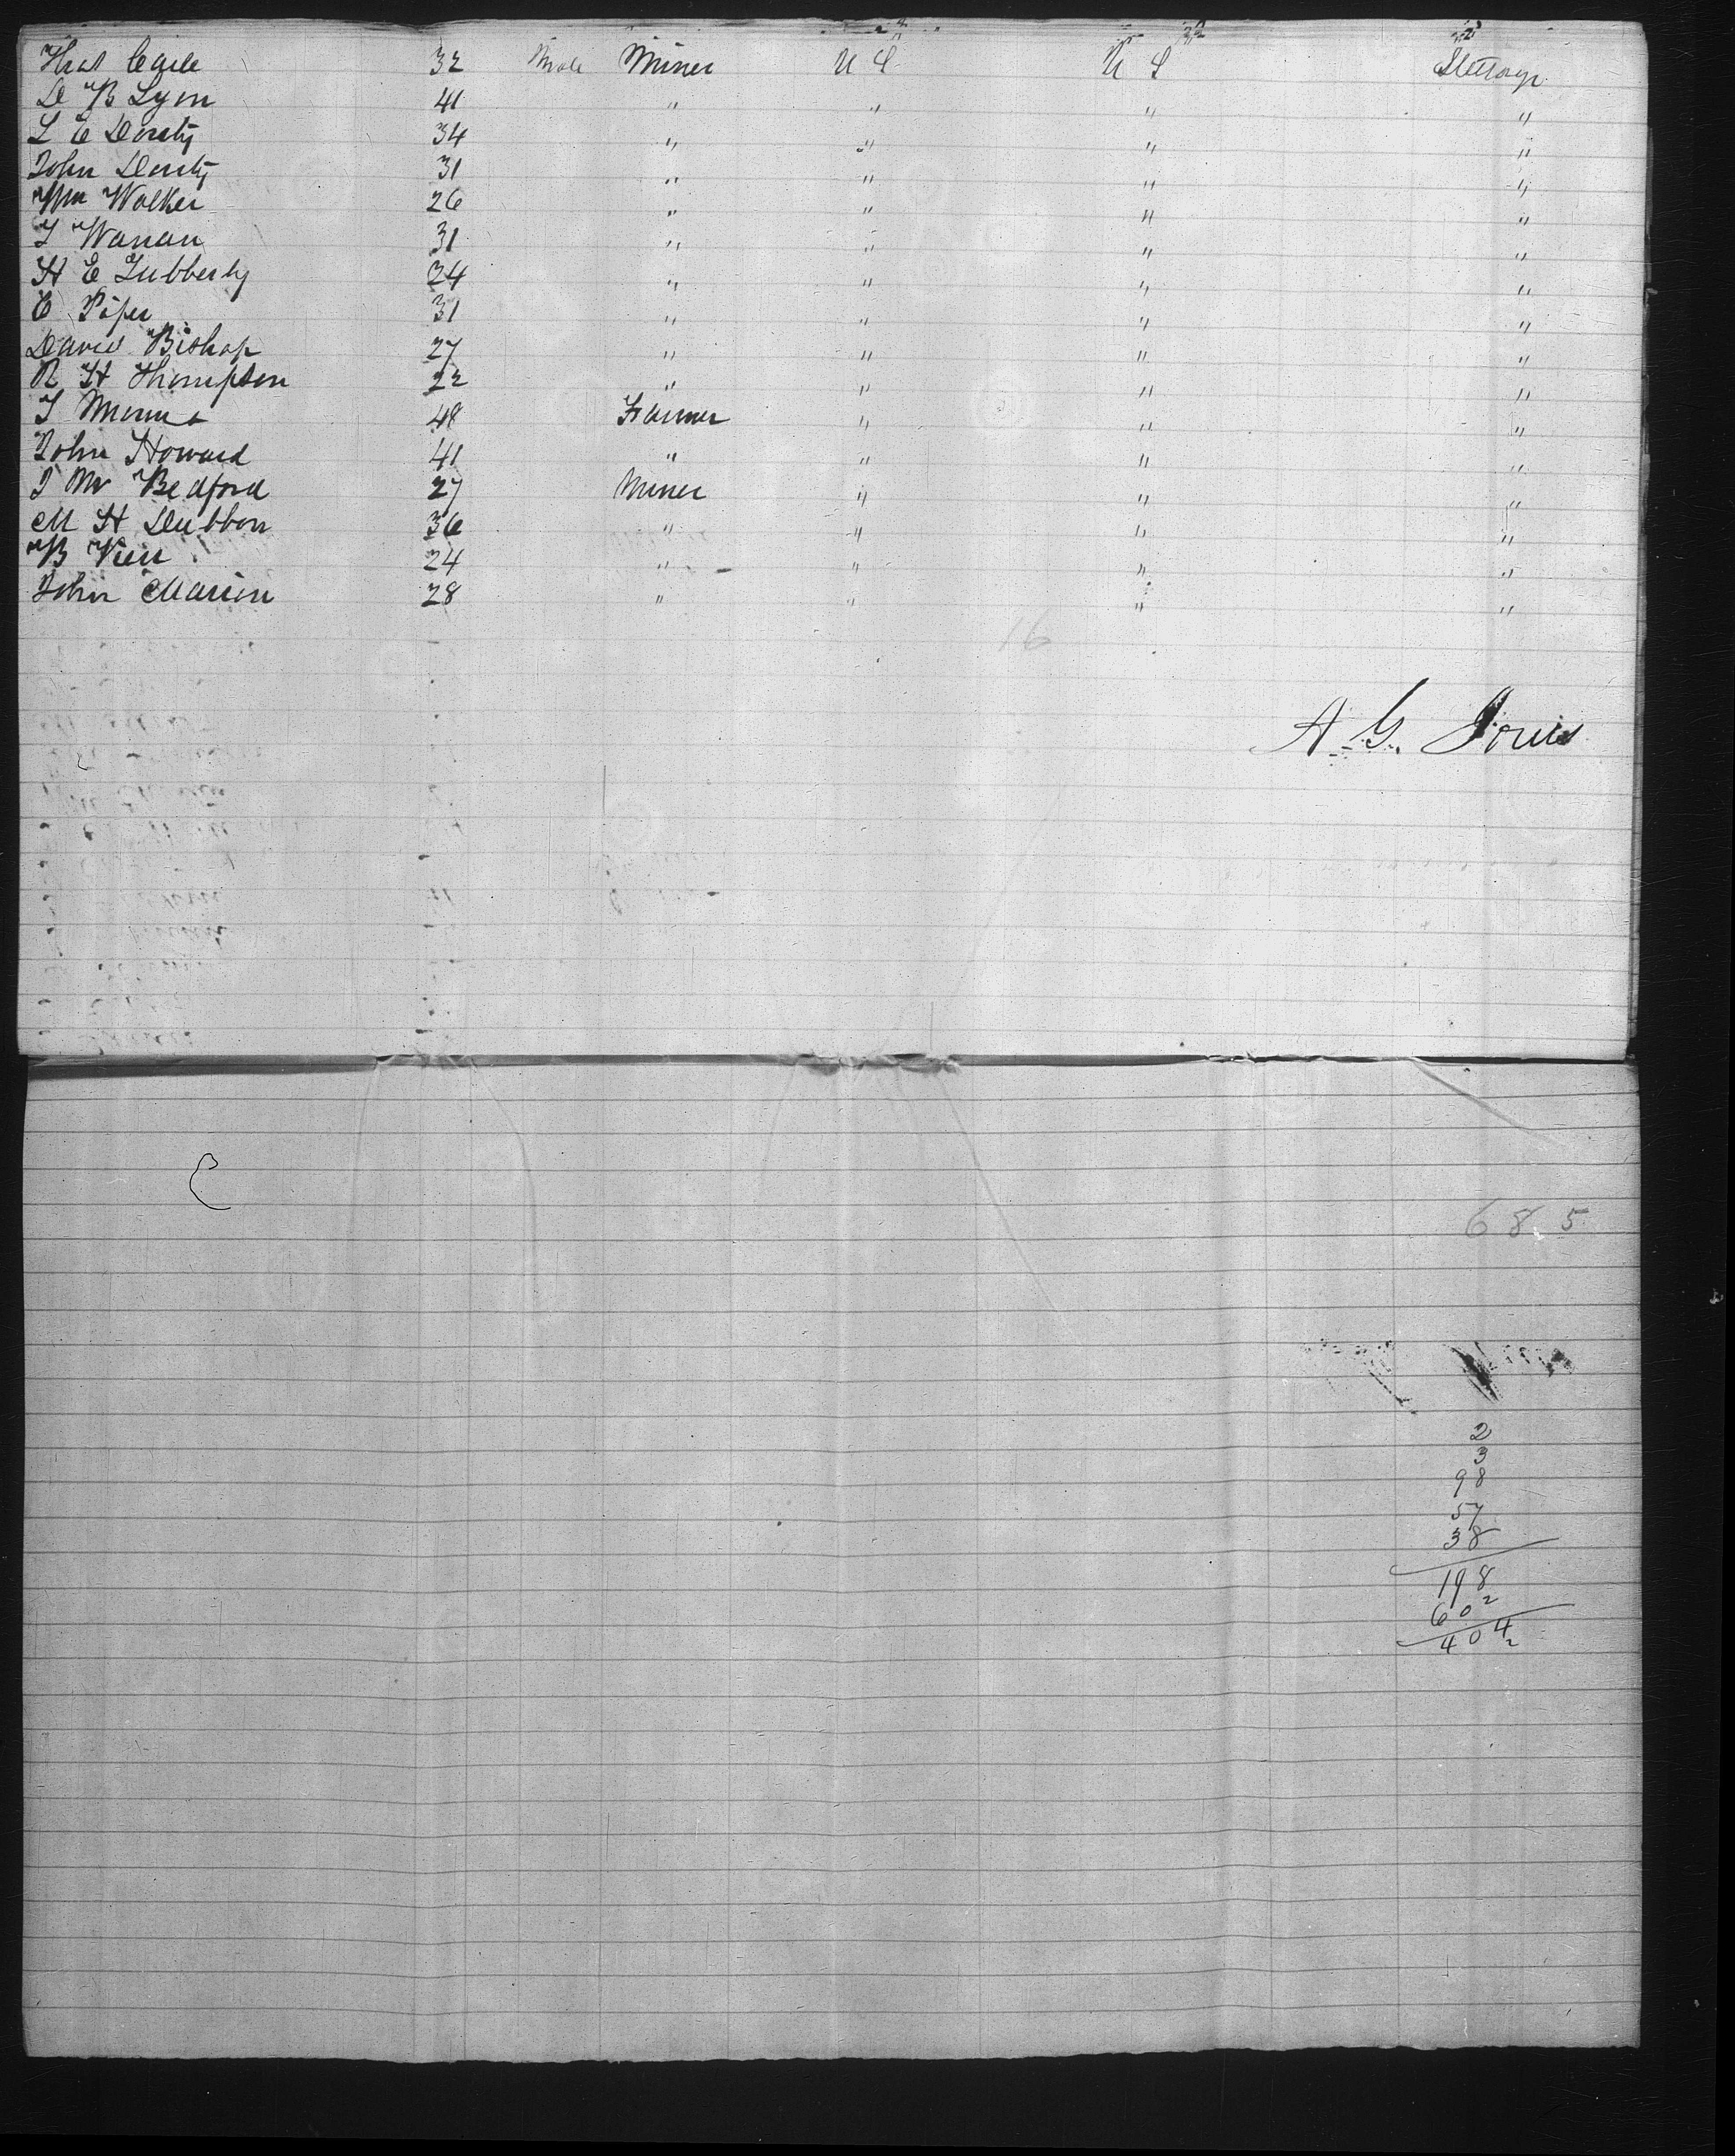 Thos Cagle 32 Male Miner U S U S Steerage
D B Lyon 41 " " " "
L C Doruty 34 " " " "
John Doruty 31 " " " "
Wm Walker 26 " " " "
T Wanan 31 " " " "
H E Lubberly 24 " " " "
C Piper 31 " " " "
David Bishop 27 " " " "
R H Thompson 22 " " " "
T 48 Farmer " " "
John Howard 41 " " " "
J M Bedford 27 Miner " " "
M H Dubbon 36 " " " "
B 24 " " " "
John Marion 28 " " " "
16
A. G. Jones
685
2
3
98
57
38
198
602
404
2